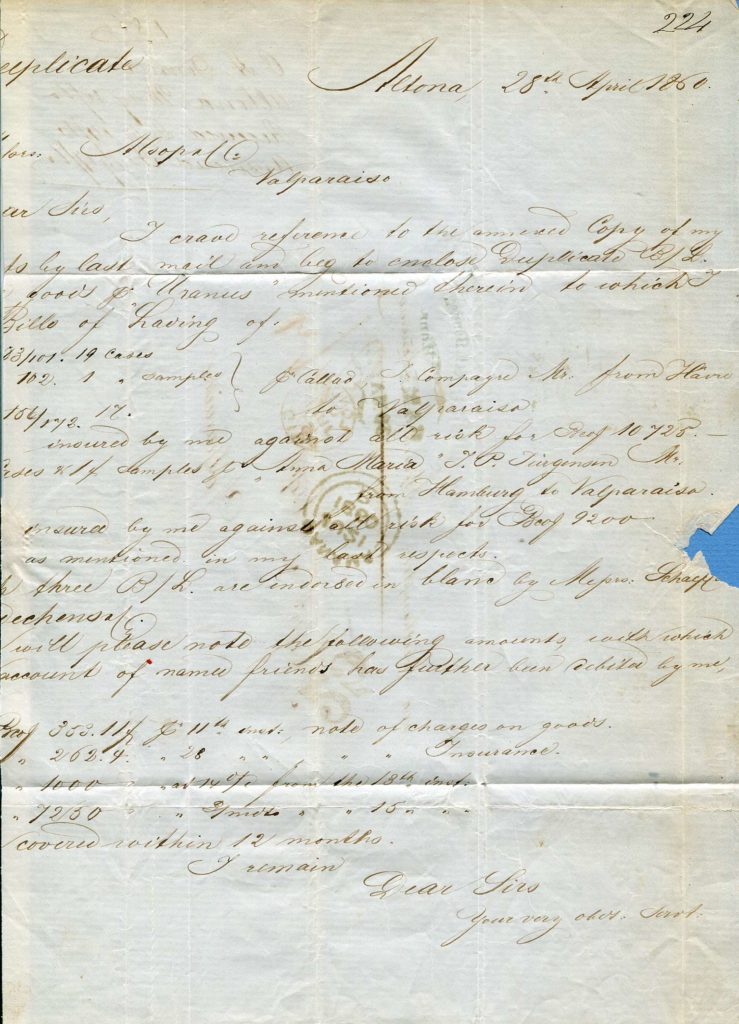 224
Duplicate
Altona, 28th April 1860.
Alsop & Co:
Valparaiso
ear Sirs,
I crave reference to the annexed Copy of my
ts by last mail and beg to enclose Duplicate B/L.
goods pr "Uranus" mentioned therein to which I
Bills of Lading of.
83/101. 19 cases
102. 1 " samples
pr Callao Mr. from Hâvre
156/172. 17.
to Valparaiso
insured by me against all risk for Bcof 10725.—
ases & 1 f samples pr "Anna Maria", T. P. Jürgensen Mr.
from Hamburg to Valparaiso.
insured by me against all risk for Bcof 9200
as mentioned in my last respects.
three B/L. are indorsed in blanc by Messrs.
will please note the following amounts, with which
account of named friends has further been debited by me,
Bcof 353. 11f pr 11th inst: note of charges on goods.
" 262. 4. " 28 " " " " Insurance.
" 1000 from the 18th inst.
" 7250 " " 15 " "
covered within 12 months.
I remain
Dear Sirs
Your very obdt. Servt.